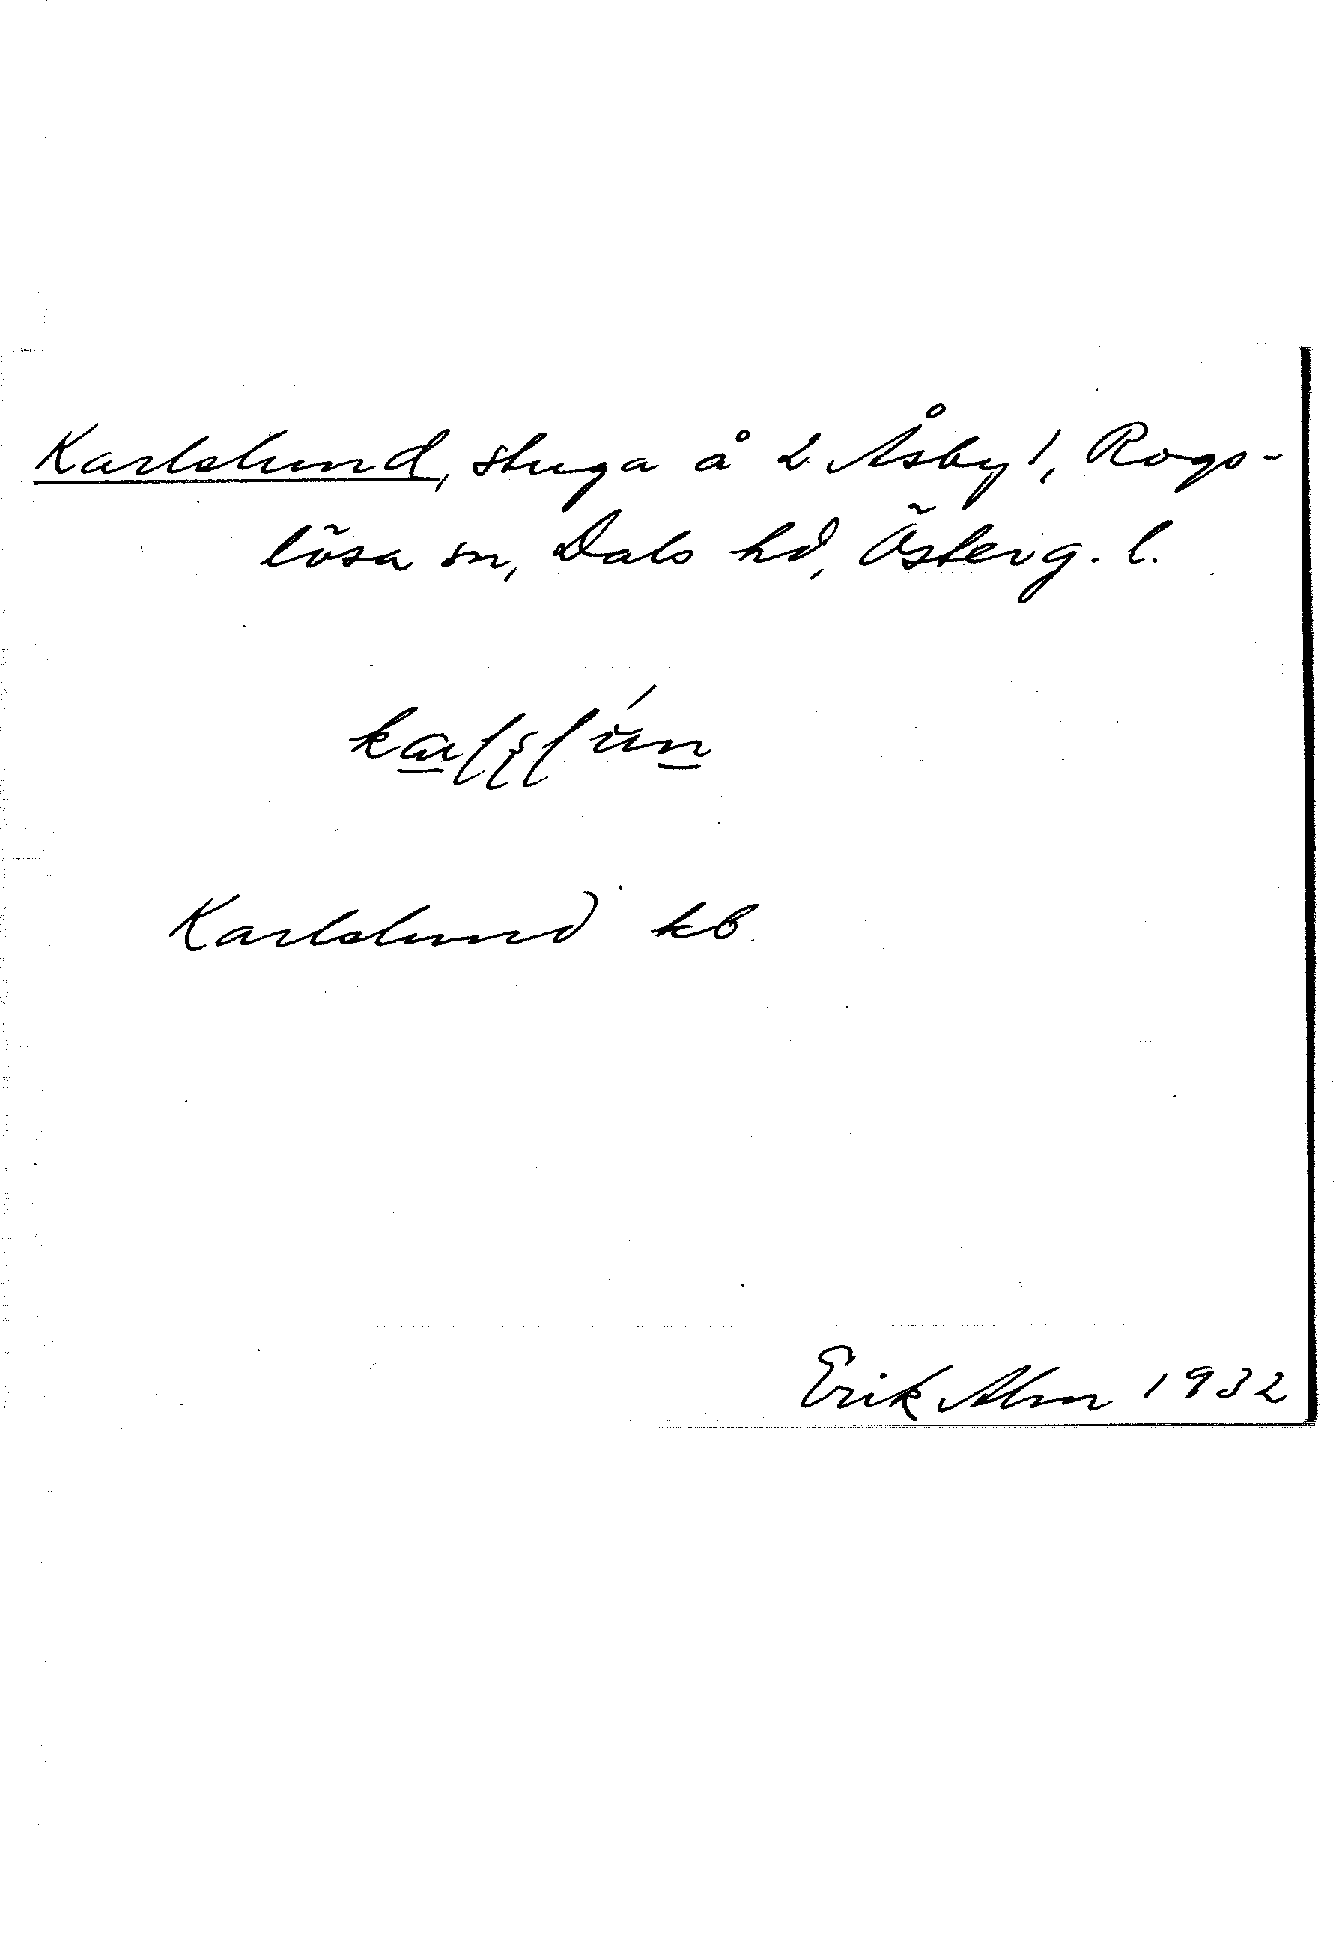 Karlslund, stuga å 2 Åsby 1, Rogs-
lösa sn, Dals hd, Österg. l.
Karlslund kb
Erik Alm 1932